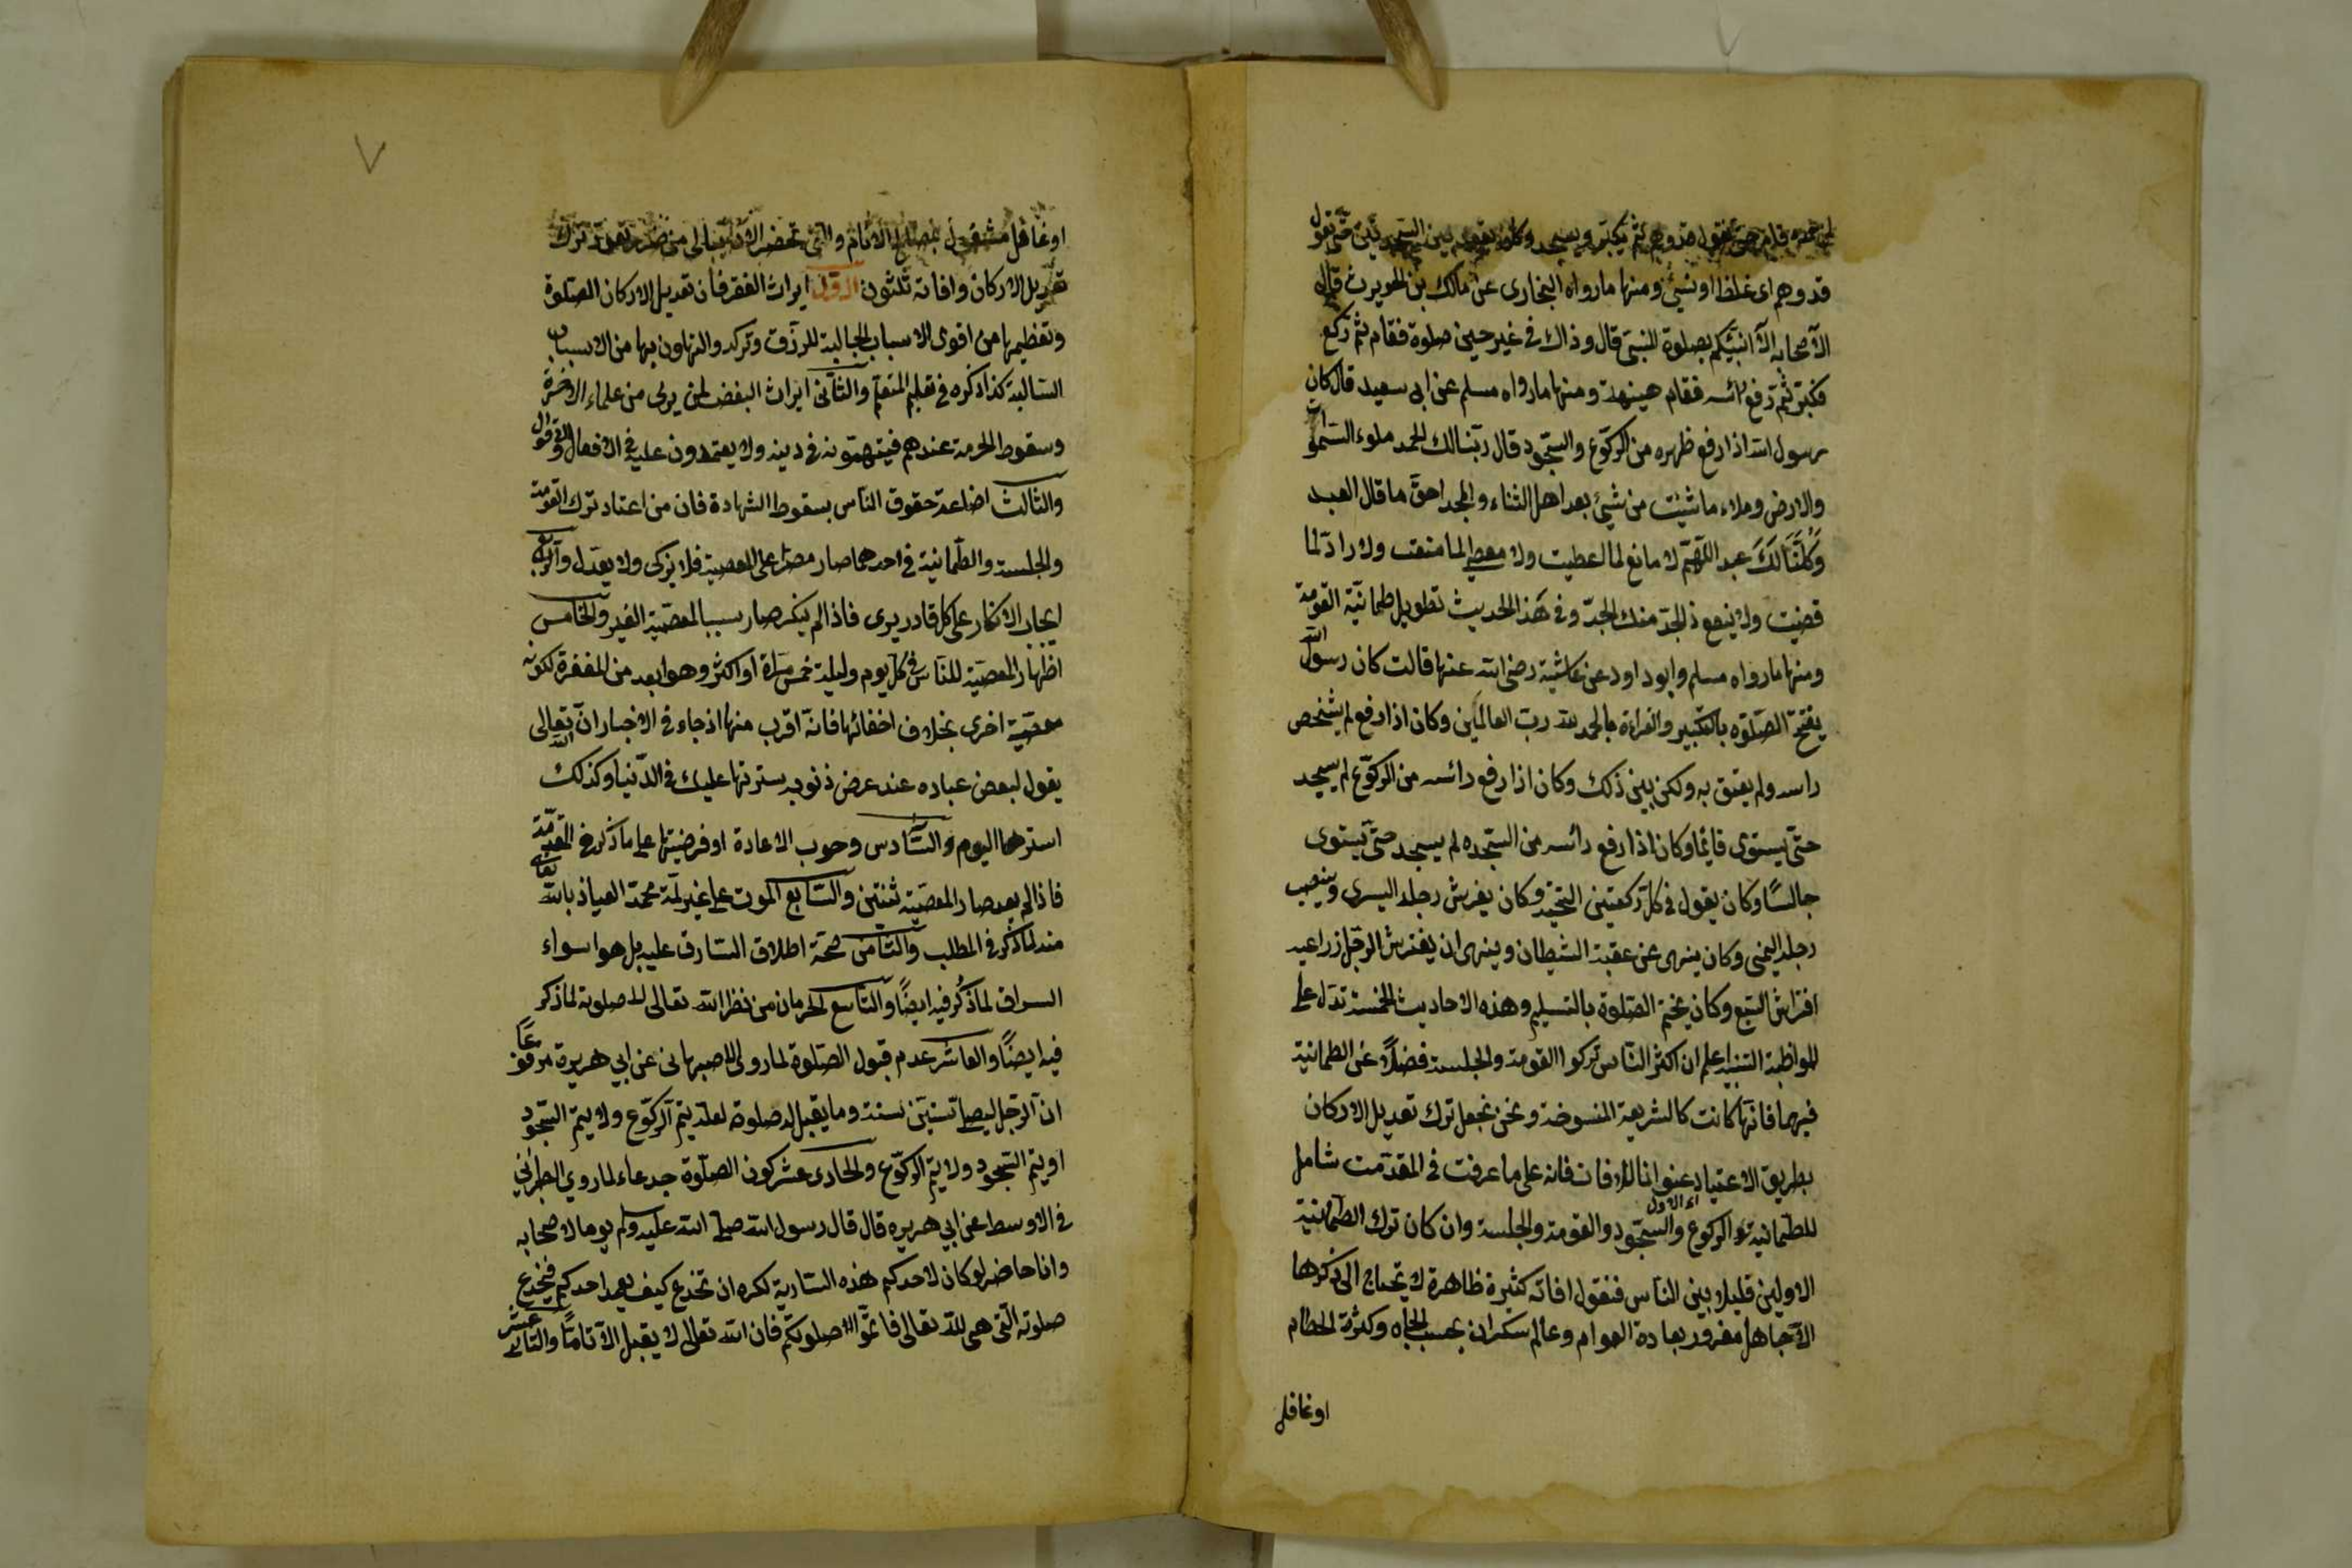 لمن حمده قام حتى نقول قد وهم ثم يكبر ويسجد وكان يقعد بين السجدتين حتى نقول
قد وهم اى غلظ او نسئ ومنها مارواه البخارى عن مالك بن الحويرث قال
لاصحابه الا انبئكم بصلوة النبى قال وذاك فى غير حين صلوة فقام ثم ركع
فكبر ثم رفع رائسه فقام هينهة ومنها مارواه مسلم عن ابى سعيد قال كان
رسول الله اذا رفع ظهره من الركوع والسجود قال ربنا لك الحمد ملوء السموات
والارض وملاء ما شئت من شيئ بعد اهل الثناء والمجد احق ما قال العبد
وكلنا لك عبد اللهم لا مانع لما اعطيت ولا معطى لما منعت ولا راد لما
قضيت ولا ينفع ذا الجد منك الجد وفى هذا الحديث تطويل طمانية القومة
ومنها مارواه مسلم وابو داود عن عائشة رضى الله عنها قالت كان رسول الله
يفتح الصلوة بالتكبير والقراءة بالحمد لله رب العالمين وكان اذا رفع لم يشخص
راسه ولم يعنق به ولكن بين ذلك وكان اذا رفع رائسه من الركوع لم يسجد
حتى يستوى قائما وكان اذا رفع رائسه من السجده لم يسجد حتى يستوى
جالسًا وكان يقول فى كل ركعتين التحية وكان يفرش رجله اليسرى وينصب
رجله اليمنى وكان ينهى عن عقبة الشيطان وينهى ان يفترش الرجل ذراعيه
افتراش السبع وكان يختم الصلوة بالتسليم وهذه الاحاديث الخمسة تدل على
المواظبة التنبيه اعلم ان اكثر الناس تركوا القومة والجلسة فضلاً عن الطمانية
فيهما فانها كانت كالشريعة المنسوخة ونحن نجعل ترك تعديل الاركان
بطريق الاعتياد عنوانا للافات فانه على ما عرفت فى المقدمت شامل
للطمانية فى الركوع والسجود والقومة والجلسة وان كان ترك الطمانية
اى الاول
الاولين قليلا بين الناس فنقول افاته كثيرة ظاهرة لا يحتاج الى ذكرها
الا جاهل مغرور بعادة العوام وعالم سكران بحب الجاه وكثرة الحطام
اوغافل
٧
اوغافل مشغول بمصالح الانام والتى تحضر الان ببالى من ضرر تعمد ترك
تعديل الاركان وافاته ثلثون الاول ايراث الفقر فان تعديل الاركان الصلوة
وتعظيمها من اقوى الاسباب الجالبة للرزق وتركه والتهاون بها من الاسباب
السالبة كذا ذكره فى تعليم المتعلم والثانى ايراث البغض لمن يرى من علماء الاخرة
وسقوط الحرمة عندهم فيتهمونه فى دينه ولا يعتمدون عليه فى الافعال والاقوال
والثالث اضاعة حقوق الناس بسقوط الشهادة فان من اعتاد ترك القومة
والجلسة والطمانية فى احدهما صار مصرا على المعصية فلا يزكى ولا يعدل والرابع
ايجاب الانكار على كل قادر يرى فاذا لم ينكر صار سببا لمعصية الغير والخامس
اظهار المعصية للناس فى كل يوم وليلة خمس مراة او اكثر وهو ابعد من المغفرة لكونه
معصية اخرى بخلاف اخفائها فانه اقرب منها اذ جاء فى الاخبار ان الله تعالى
يقول لبعض عباده عند عرض ذنوبه سترتها عليك فى الدنيا وكذلك
استرها اليوم والسادس وجوب الاعادة او فرضيتها على ما ذكر فى المقدمة
فاذا لم يعد صار المعصية ثنتين والسابع الموت على غير ملة محمد العياذ بالله تعالى
منه لما ذكر فى المطلب والثامن صحة اطلاق السارق عليه بل هو اسواء
السراق لما ذكر فيه ايضًا والتاسع الحرمان من نظر الله تعالى للاصلوته لما ذكر
فيه ايضًا والعاشر عدم قبول الصلوة لما روى الاصبهانى عن ابي هريرة مرفوعًا
ان الرجل ليصلى ستين سنة وما يقبل له صلوة لعله يتم الركوع ولا يتم السجود
او يتم السجود ولا يتم الركوع والحادى عشر كون الصلوة جدعاء لما روي الطبرانى
فى الاوسط عن ابي هريره قال قال رسول الله صلى الله عليه وسلم يوما لاصحابه
وانا حاضر لو كان لاحدكم هذه السارية لكره ان تجدع كيف يعمد احدكم فيجدع
صلوته التى هى لله تعالى فاتموا صلوتكم فان الله تعالى لا يقبل الا تامًا والثانى عشر